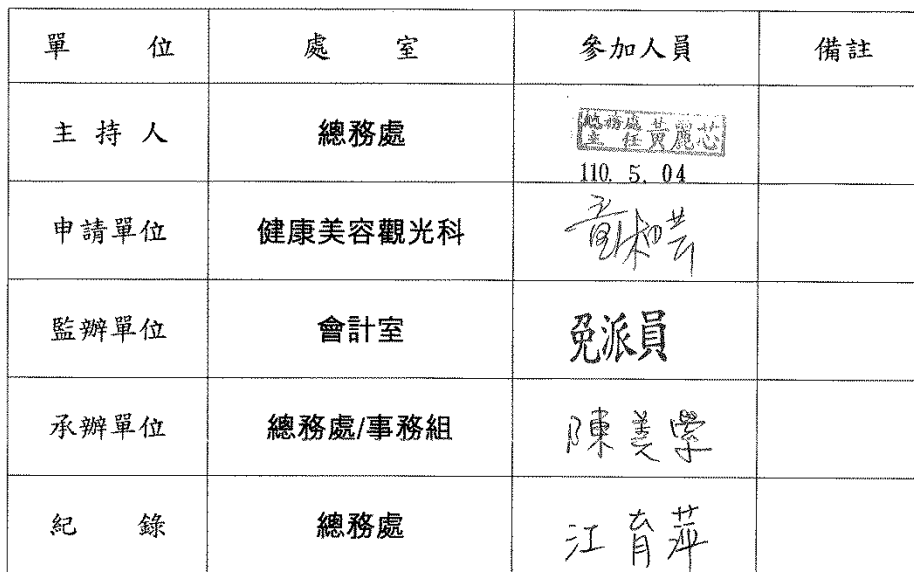 單位 處室 參加人員 備註
主持人 總務處 總務處主任黃麗芯
110. 5. 04
申請單位 健康美容觀光科
監辦單位 會計室 免派員
承辦單位 總務處/事務組 陳美學
紀錄 總務處 江育萍